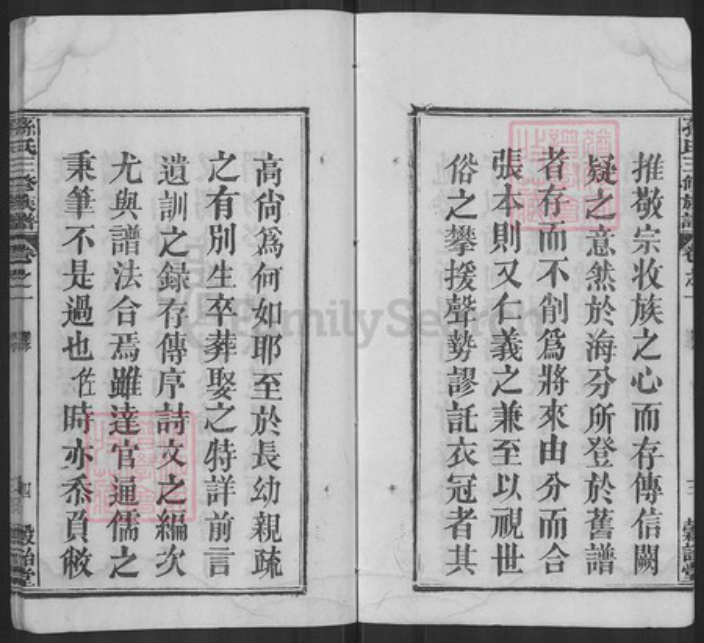 推敬宗收族之心而存傳信闕
疑之意然於海分所登於舊譜
者存而不削爲將來由分而合
張本則又仁義之兼至以視世
俗之攀援聲勢謬託衣冠者其
三
高尙爲何如耶至於長幼親疏
之有別生卒葬娶之特詳前言
遺訓之録存傳序詩文之編次
尤與譜法合焉雖達官通儒之
秉筆不是過也佐時亦忝頁敝
孫氏三修族譜
卷之一
四
穀詒堂
FamilySearch